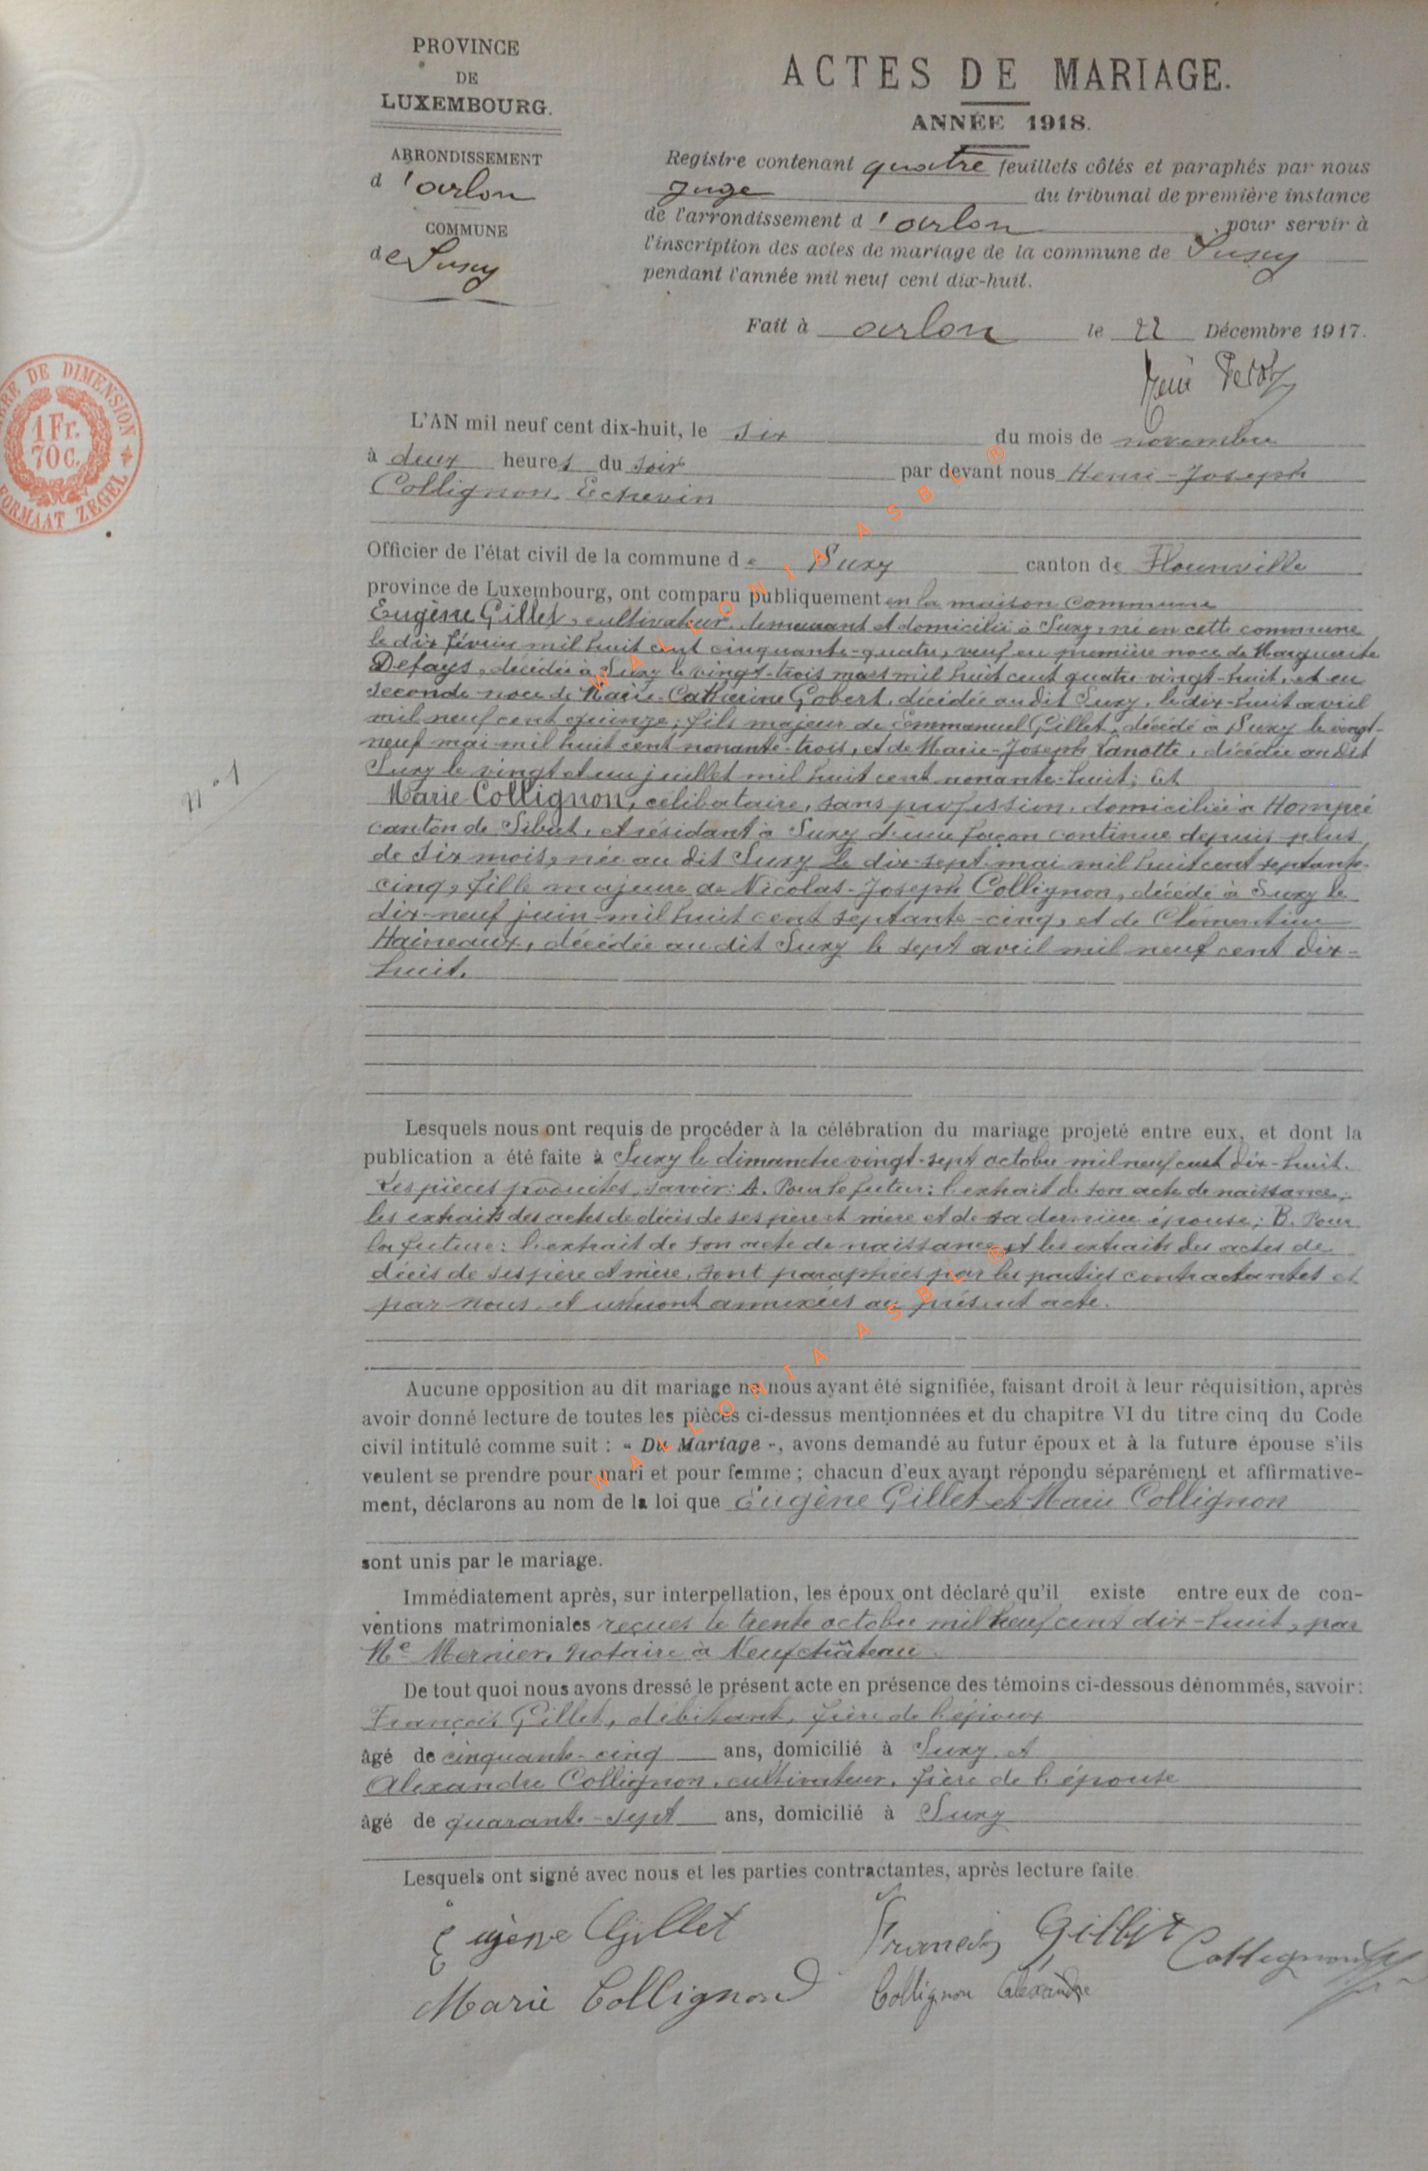 PROVINCE
DE
LUXEMBOURG.
ARRONDISSEMENT
d'arlon
COMMUNE
de Suxy
ACTES DE MARIAGE.
ANNÉE 1918.
Registre contenant quatre feuillets côtés et paraphés par nous
Juge du tribunal de première instance
de l'arrondissement d'arlon, pour servir à
l'inscription des actes de mariage de la commune de Suxy
pendant l'année mil neuf cent dix-huit.
Fait à arlon le 22 Décembre 1917.
TIMBRE DE DIMENSION
1 Fr.
70 C.
FORMAAT ZEGEL
n° 1
L'AN mil neuf cent dix-huit, le six du mois de novembre
à deux heures du soir par devant nous Henri-Joseph
Collignon, Echevin
Officier de l'état civil de la commune de Suxy canton de Florenville
province de Luxembourg, ont comparu publiquement en la maison commune
Eugène Gillet, cultivateur, demeurant et domicilié à Suxy, né en cette commune
le dix février mil huit cent cinquante-quatre, veuf en première noce de Marguerite
Defays, décédée à Suxy le vingt-trois mars mil huit cent quatre vingt-huit, et en
seconde noce de Marie-Catherine Gobert, décédée au dit Suxy, le dix-huit avril
mil neuf cent quinze; fils majeur de Emmanuel Gillet, décédé à Suxy le vingt-
neuf mai mil huit cent nonante-trois, et de Marie-Joseph Lanotte, décédée au dit
Suxy le vingt et un juillet mil huit cent nonante-huit; et
Marie Collignon, célibataire, sans profession, domiciliée à Hompré
canton de Sibret, et résidant à Suxy d'une façon continue depuis plus
de six mois, née au dit Suxy le dix-sept mai mil huit cent septante-
cinq, fille majeure de Nicolas-Joseph Collignon, décédé à Suxy le
dix-neuf juin mil huit cent septante-cinq, et de Clémentine
Haineaux, décédée au dit Suxy le sept avril mil neuf cent dix-
huit.
Lesquels nous ont requis de procéder à la célébration du mariage projeté entre eux, et dont la
publication a été faite à Suxy le dimanche vingt-sept octobre mil neuf cent dix-huit.
Les pièces produites, savoir: A. Pour le futur: l'extrait de son acte de naissance,
les extraits des actes de décès de ses père et mère et de sa dernière épouse; B. Pour
la future: l'extrait de son acte de naissance et les extraits des actes de
décès de ses père et mère, sont paraphées par les parties contractantes et
par nous, et resteront annexées au présent acte.
Aucune opposition au dit mariage ne nous ayant été signifiée, faisant droit à leur réquisition, après
avoir donné lecture de toutes les pièces ci-dessus mentionnées et du chapitre VI du titre cinq du Code
civil intitulé comme suit : « Du Mariage », avons demandé au futur époux et à la future épouse s'ils
veulent se prendre pour mari et pour femme ; chacun d'eux ayant répondu séparément et affirmative-
ment, déclarons au nom de la loi que Eugène Gillet et Marie Collignon
sont unis par le mariage.
Immédiatement après, sur interpellation, les époux ont déclaré qu'il existe entre eux de con-
ventions matrimoniales reçues le trente octobre mil neuf cent dix-huit, par
Me Mernier, notaire à Neufchâteau.
De tout quoi nous avons dressé le présent acte en présence des témoins ci-dessous dénommés, savoir :
François Gillet, débitant, frère de l'époux
âgé de cinquante-cinq ans, domicilié à Suxy et
Alexandre Collignon, cultivateur, frère de l'épouse
âgé de quarante-sept ans, domicilié à Suxy
Lesquels ont signé avec nous et les parties contractantes, après lecture faite.
Eugène Gillet François Gillet Collignon
Marie Collignon Collignon Alexandre
WALLONIA ASBL ®
WALLONIA ASBL ®